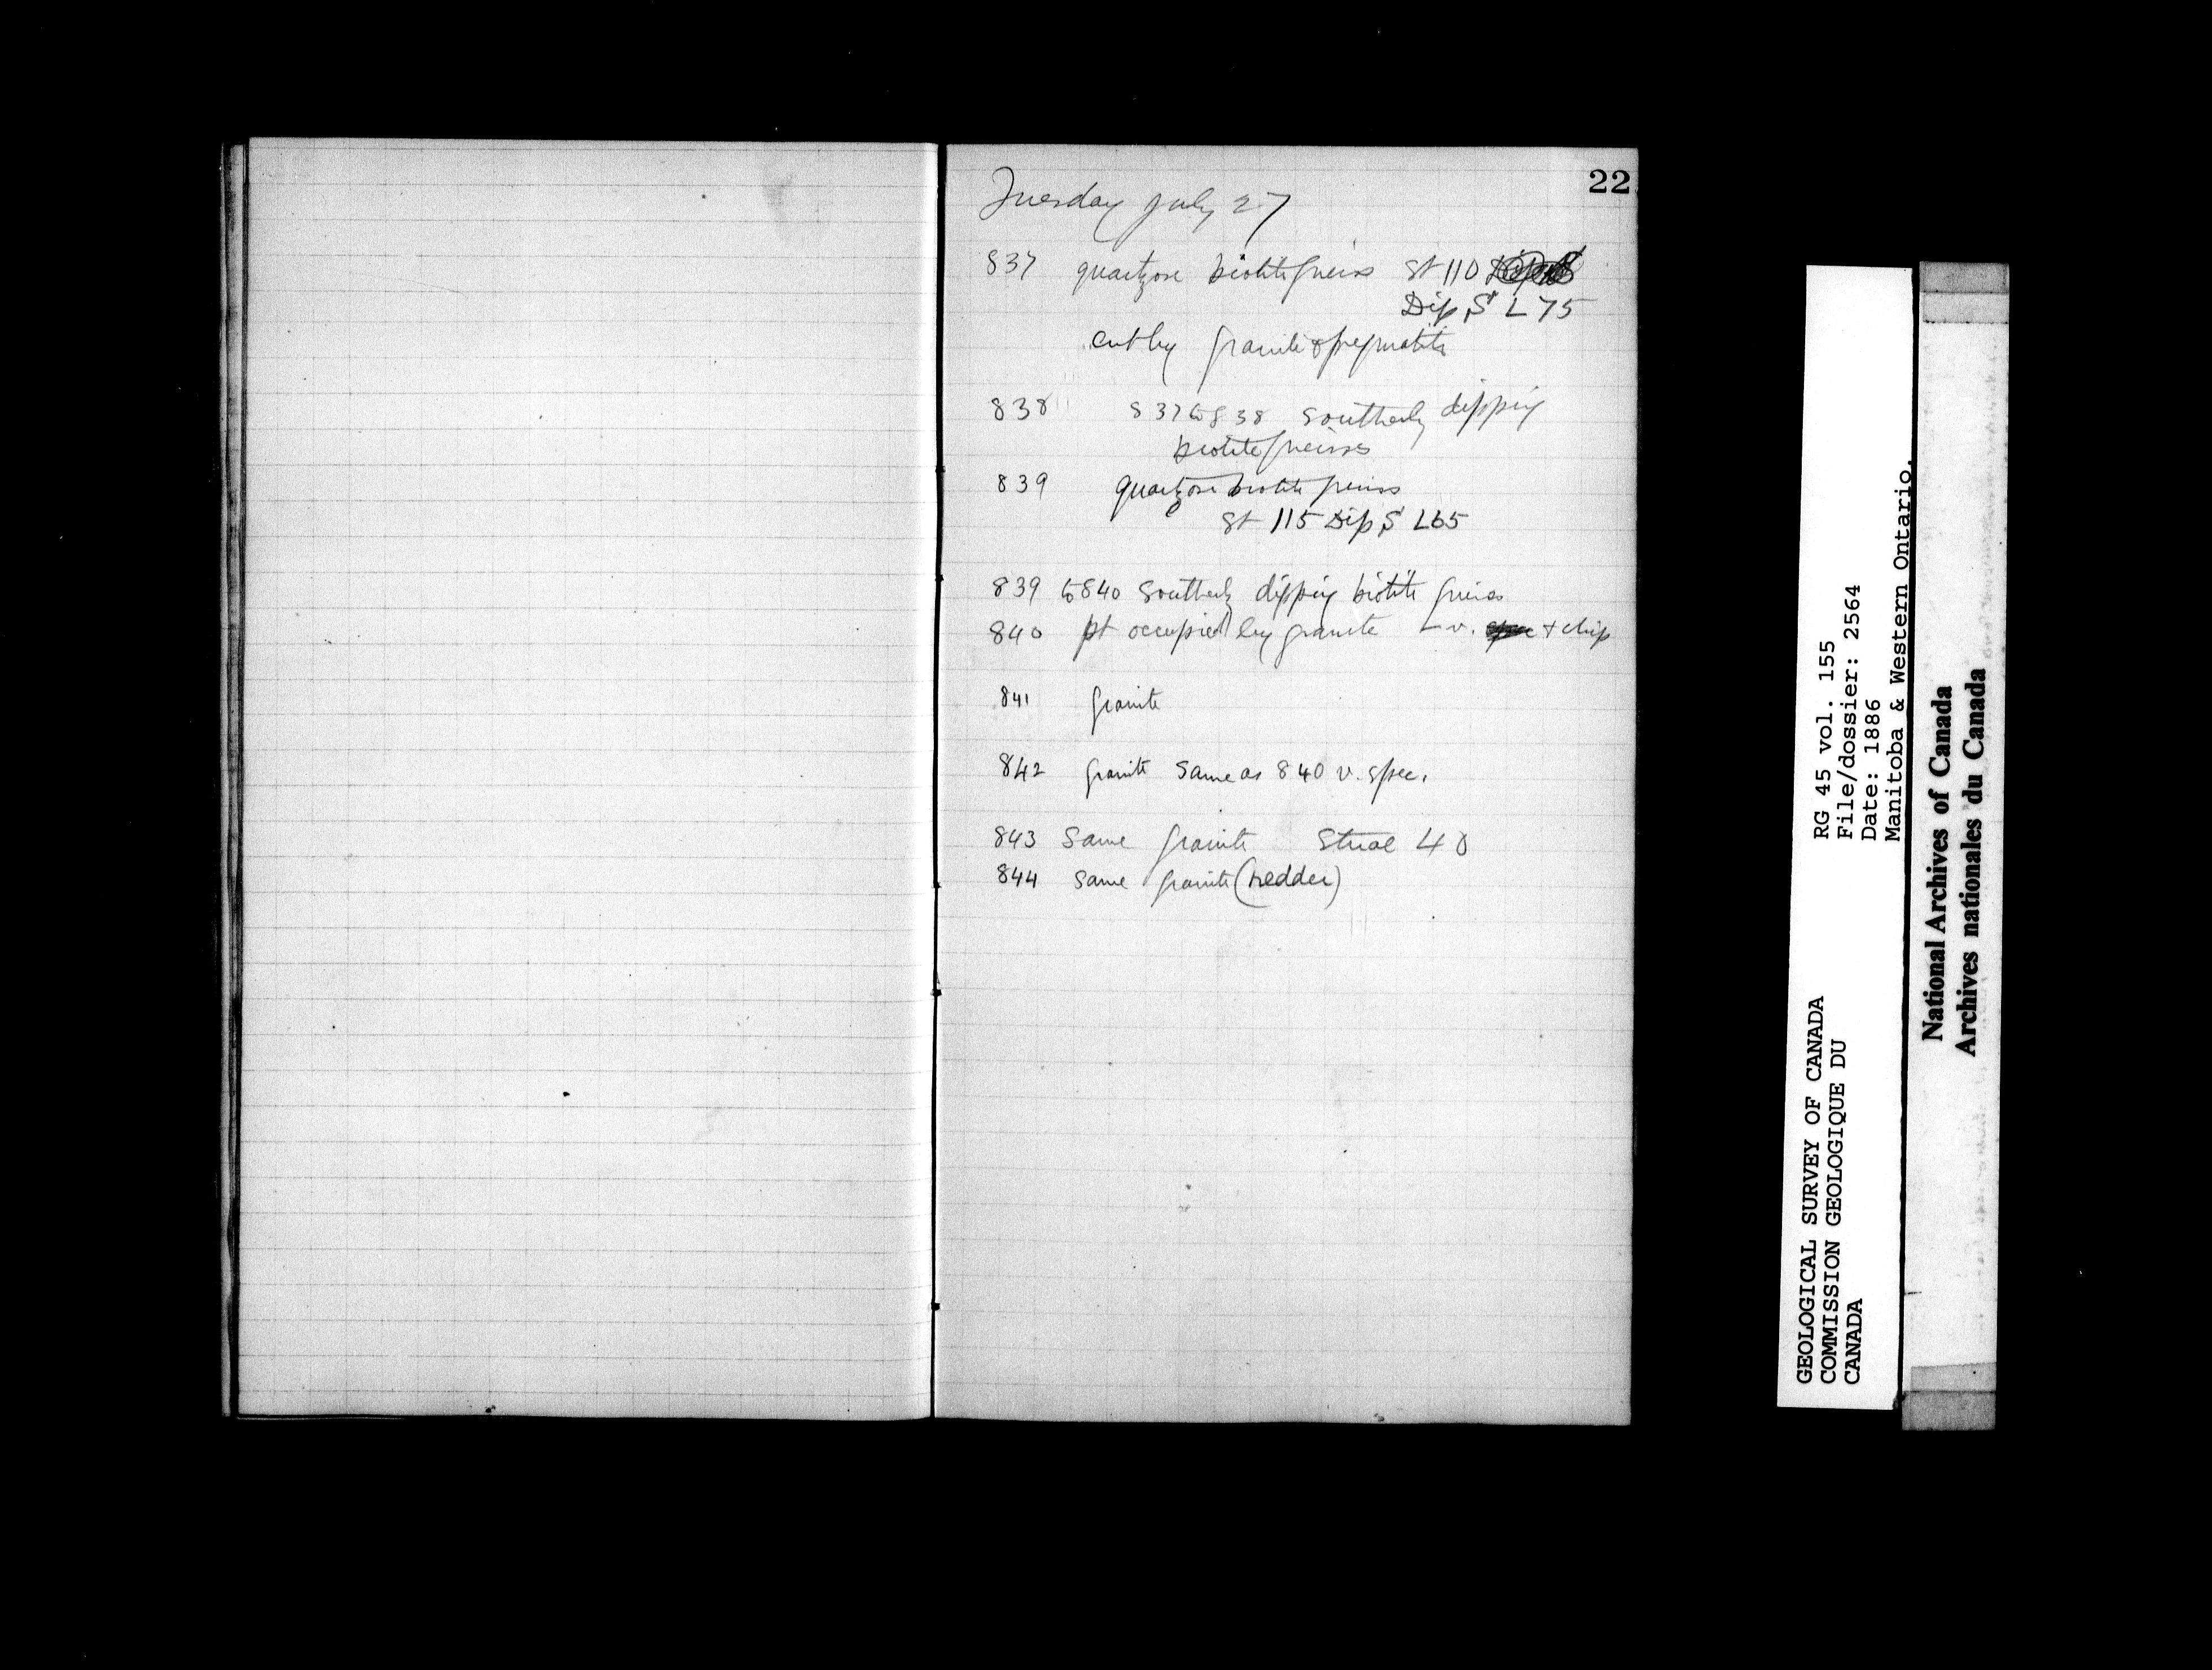 22
Tuesday July 27
837 quartzose biotite gneiss St 110
Dip S L 75
cut by granite & pegmatite
838 837 to 838 southerly dipping
biotite gneisses
839 quartzose biotite gneiss
St 115 Dip S L65
839 to 840 Southerly dipping biotite gneiss
840 pt occupied by granite v. + chip
841 granite
842 granite same as 840 v. spec.
843 Same granite Striae 40
844 same granite (redder)
GEOLOGICAL SURVEY OF CANADA
COMMISSION GEOLOGIQUE DU
CANADA
RG 45 vol. 155
File/dossier: 2564
Date: 1886
Manitoba & Western Ontario.
National Archives of Canada
Archives nationales du Canada